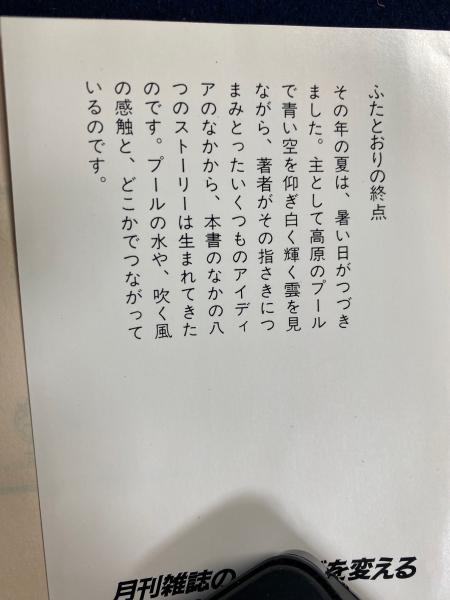 ふたとおりの終点
その年の夏は、暑い日がつづき
ました。主として高原のプール
で青い空を仰ぎ白く輝く雲を見
ながら、著者がその指さきにつ
まみとったいくつものアイディ
アのなかから、本書のなかの八
つのストーリーは生まれてきた
のです。プールの水や、吹く風
の感触と、どこかでつながって
いるのです。
月刊雑誌の を変える